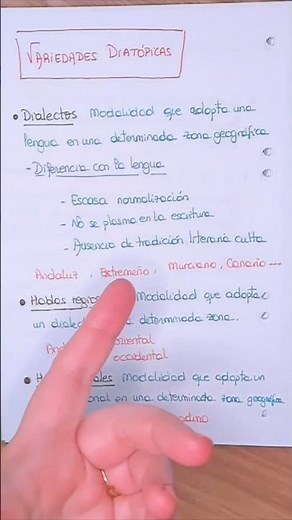 VARIEDADES DIATÓPICAS
• Dialectos Modalidad que adopta una
lengua en una determinada zona geográfica
- Diferencia con la lengua
- Escasa normalización
- No se plasma en la escritura
- Ausencia de tradición literaria culta
Andaluz, Extremeño, Murciano, Canario...
• Hablas Modalidad que adopta
un determinada zona.
occidental
Modalidad que adopta un
en una determinada zona geográfica